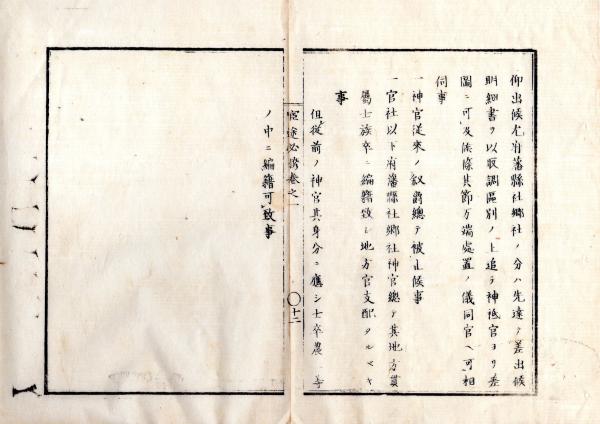 仰出候尤府藩縣社鄉社ノ分ハ先達テ差出候
明細書ヲ以取調區別ノ上追テ神祇官ヨリ差
圖ニ可及候條其節万端處置ノ儀同官ヘ可相
伺事
一神官從來ノ叙爵總テ被止候事
一官社以下府藩縣社鄉社神官總テ其地方貫
屬士族卒ニ編籍致シ地方官支配タルヘキ
事
但從前ノ神官其身分ニ應シ士卒農等
官途必携卷之一
〇十二
ノ中ニ編籍可致事